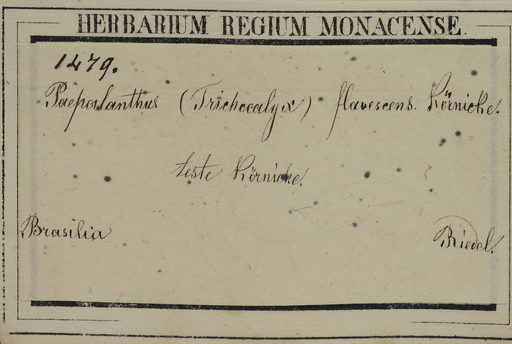 HERBARIUM REGIUM MONACENSE.
1479.
Paepalanthus (Trichocalyx) flavescens Körnicke.
teste Körnicke.
Brasilia Riedel.